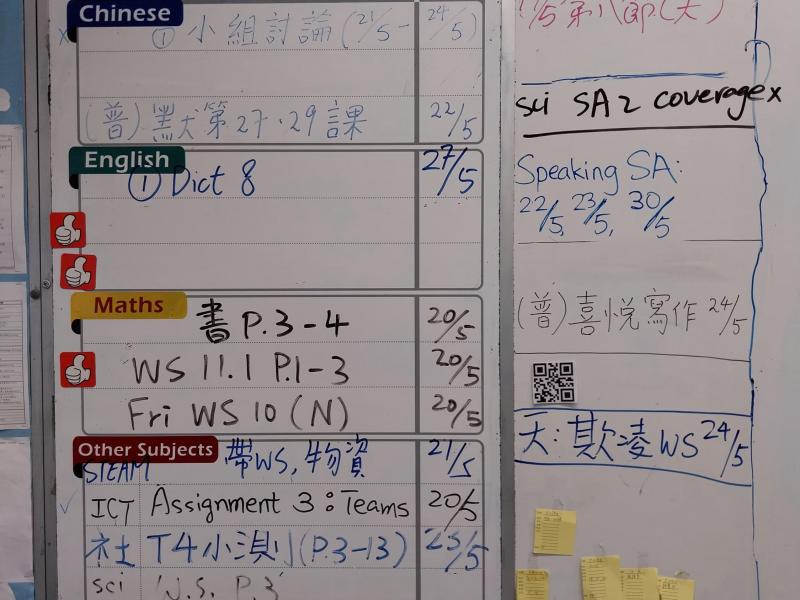 Chinese
① 小組討論(21/5 - 24/5)
(普)默犬第27、29課 22/5
English
① Dict 8 27/5
Maths
書 P.3-4 20/5
WS 11.1 P.1-3 20/5
Fri WS 10 (N) 20/5
Other Subjects
STEAM 帶WS, 物資 21/5
ICT Assignment 3: Teams 20/5
社 T4小測(P.3-13) 23/5
sci W.S. P.3
/5 第八節(大)
sci SA 2 coverage x
Speaking SA:
22/5, 23/5, 30/5
(普)喜悅寫作 24/5
天: 欺凌WS 24/5